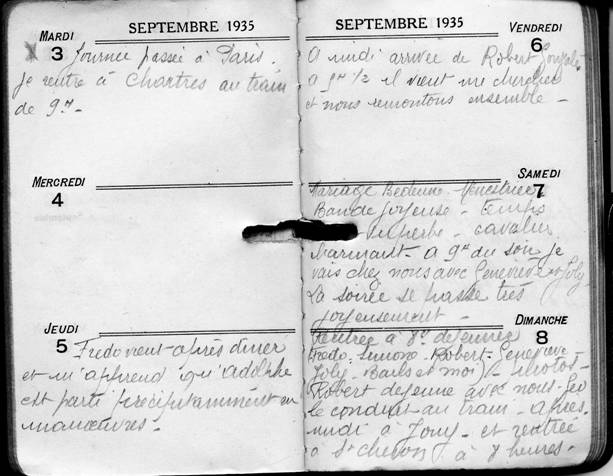 SEPTEMBRE 1935
MARDI
3
Journée passée à Paris.
Je rentre à Chartres au train
de 9h -
MERCREDI
4
JEUDI
5
Fredo vient après diner
et m'apprend qu'Adolphe
est parti précipitamment en
manoeuvres -
SEPTEMBRE 1935
VENDREDI
6
A midi arrivée de Robert
a 9h 1/2 il vient me chercher
et nous remontons ensemble -
SAMEDI
7
Mariage
Bande Joyeuse - temps
superbe - cavalier
charmant - A 9h du soir je
vais chez nous avec Genevieve et Joly
La soirée se passe très
joyeusement -
DIMANCHE
8
Rentrée à 8h déjeuner
Fredo - Simone - Robert - Genevieve
Joly - et moi) - Photos -
Robert dejeune avec nous -
le conduit au train - Après
midi à Jouy - et rentrée
à St Cheron à 8 heures -